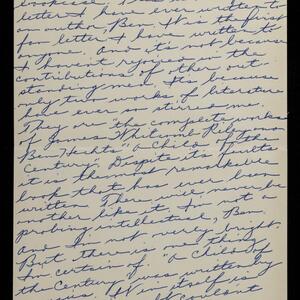 bookcase. This is
letter I have written to
an author, Ben. It is the first
fan letter I have written to
anyone. And it's not because
I haven't rejoiced in the
contributions of other out-
standing men. It's because
only two works of literature
have ever so stirred me.
They are "the complete works
of James Whitcomb Riley" and
Ben Hecht's "a Child of the
Century." Despite its faults
it is the most remarkable
book that has ever been
written. There will never be
another like it. I'm not a
probing intellectual, Ben.
And I'm not very bright.
But there is one thing
I'm certain of. "a Child of
the Century" was written by
genius. It in itself is